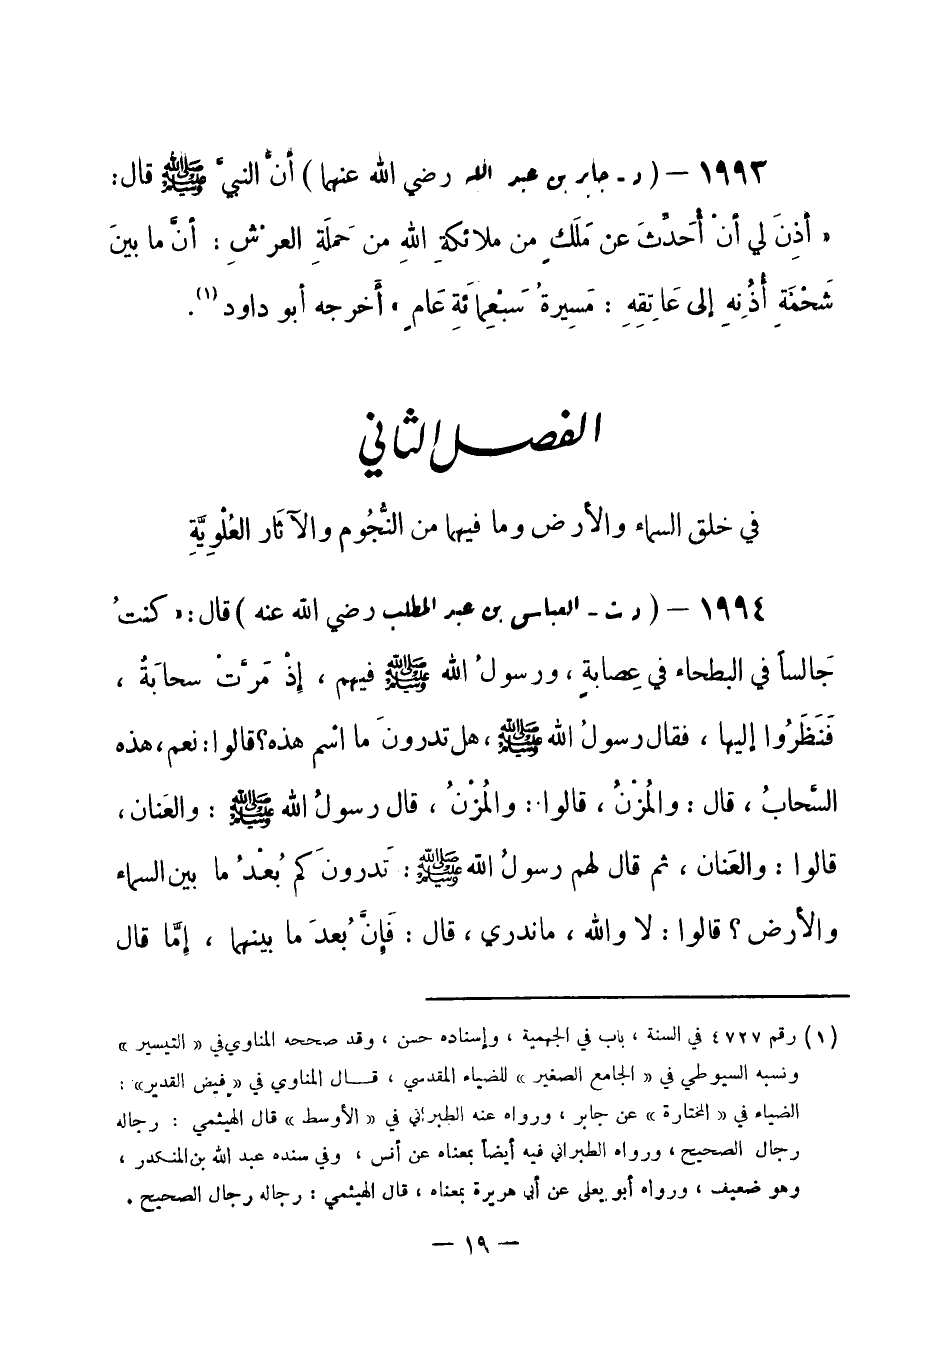 ١٩٩٣ – ( د - جابر بن عبد الله رضي الله عنهما ) أنَّ النبيَّ ﷺ قال :
« أُذِنَ لي أنْ أُحَدِّثَ عن مَلَكٍ من ملائكةِ اللهِ من حَمَلَةِ العرْشِ : أنَّ ما بينَ
شَحْمَةِ أُذُنِهِ إلى عَاتِقِهِ : مَسِيرةُ سَبْعِمائَةِ عَامٍ » أخرجه أبو داود (١) .
الفصل الثاني
في خلق السماء والأرض وما فيهما من النُّجُوم والآثَار العُلْوِيَّةِ
١٩٩٤ – ( د ت - العباس بن عبد المطلب رضي الله عنه ) قال : « كنتُ
جَالساً في البطحاء في عِصابةٍ ، ورسولُ الله ﷺ فيهم ، إذْ مَرَّتْ سحابَةُ ،
فَنَظَرُوا إليها ، فقال رسولُ الله ﷺ ، هل تدرونَ ما اسْم هذه؟ قالوا : نعم ، هذه
السَّحابُ ، قال : والمُزْنُ ، قالوا : والمُزْنُ ، قال رسولُ الله ﷺ : والعَنان ،
قالوا : والعَنان ، ثم قال لهم رسولُ الله ﷺ : تَدرونَ كم بُعْدُ ما بين السماء
والأرض ؟ قالوا : لا والله ، ماندري ، قال : فَإنَّ بُعدَ ما بينهما ، إمَّا قال
(١) رقم ٤٧٢٧ في السنة ، باب في الجهمية ، وإسناده حسن ، وقد صححه المناوي في « التيسير »
ونسبه السيوطي في « الجامع الصغير » للضياء المقدسي ، قــال المناوي في « فيض القدير » :
الضياء في « المختارة » عن جابر ، ورواه عنه الطبراني في « الأوسط » قال الهيثمي : رجاله
رجال الصحيح ، ورواه الطبراني فيه أيضاً بمعناه عن أنس ، وفي سنده عبد الله بن المنكدر ،
وهو ضعيف ، ورواه أبو يعلى عن أبي هريرة بمعناه ، قال الهيثمي : رجاله رجال الصحيح .
– ١٩ –